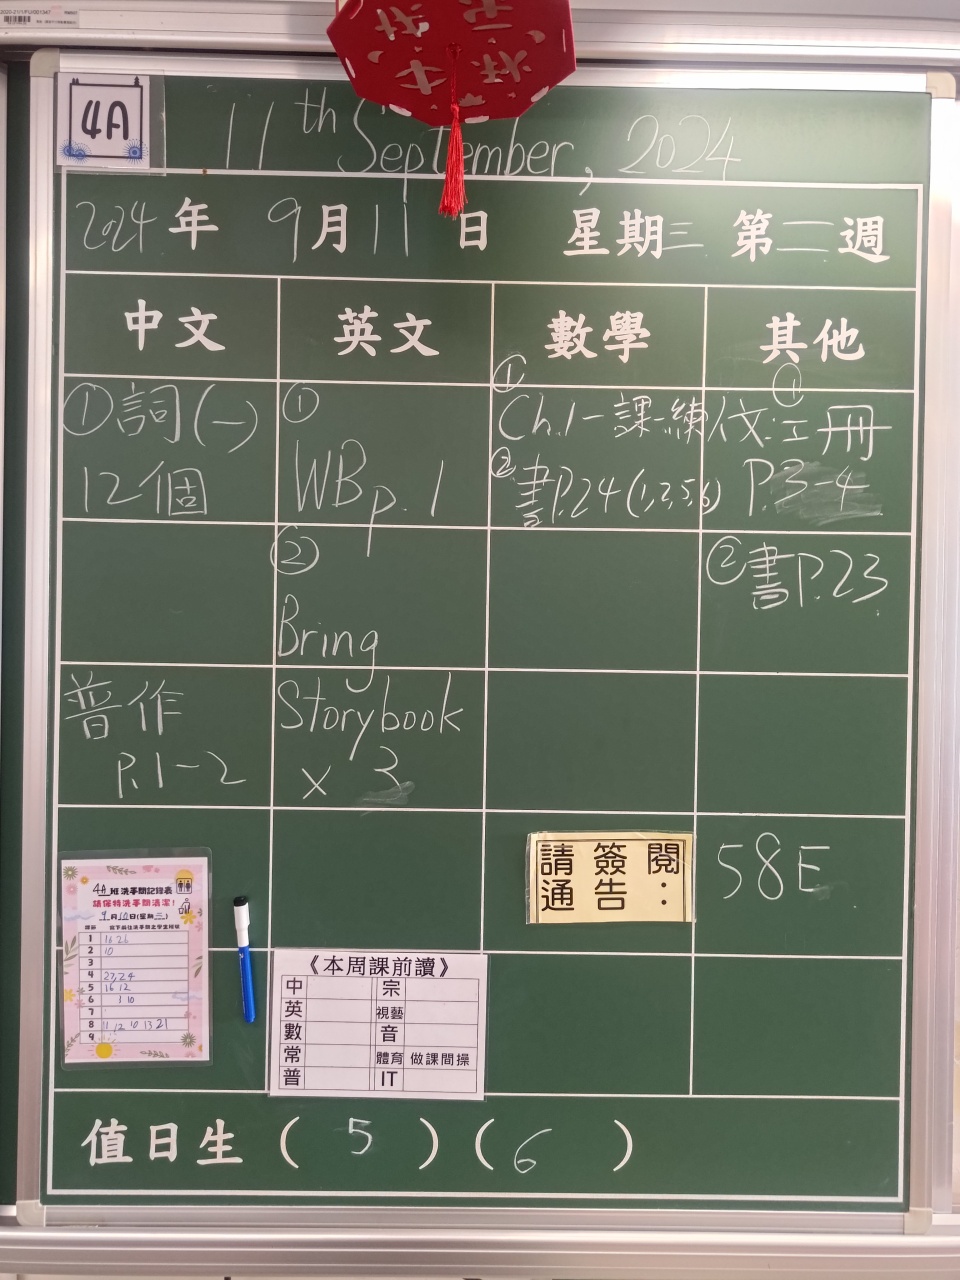 4A
11th September, 2024
2024年 9月11日 星期三 第二週
中文 英文 數學 其他
①詞(一)
12個
①
WB p. 1
①
Ch.1一課一練
②書P.24(1,2,5,6)
①
P.3-4
②
Bring
②書P.23
普作
P.1-2
Storybook
x 3
請簽閱
通告：
58E
4A班洗手間記錄表
請保持洗手間清潔！
1 16 26
2 10
3
4 23,24
5 16 12
6 3 10
7
8 11 12 10 13 21
9
《本周課前讀》
中 宗
英 視藝
數 音
常 體育 做課間操
普 IT
值日生( 5 )( 6 )